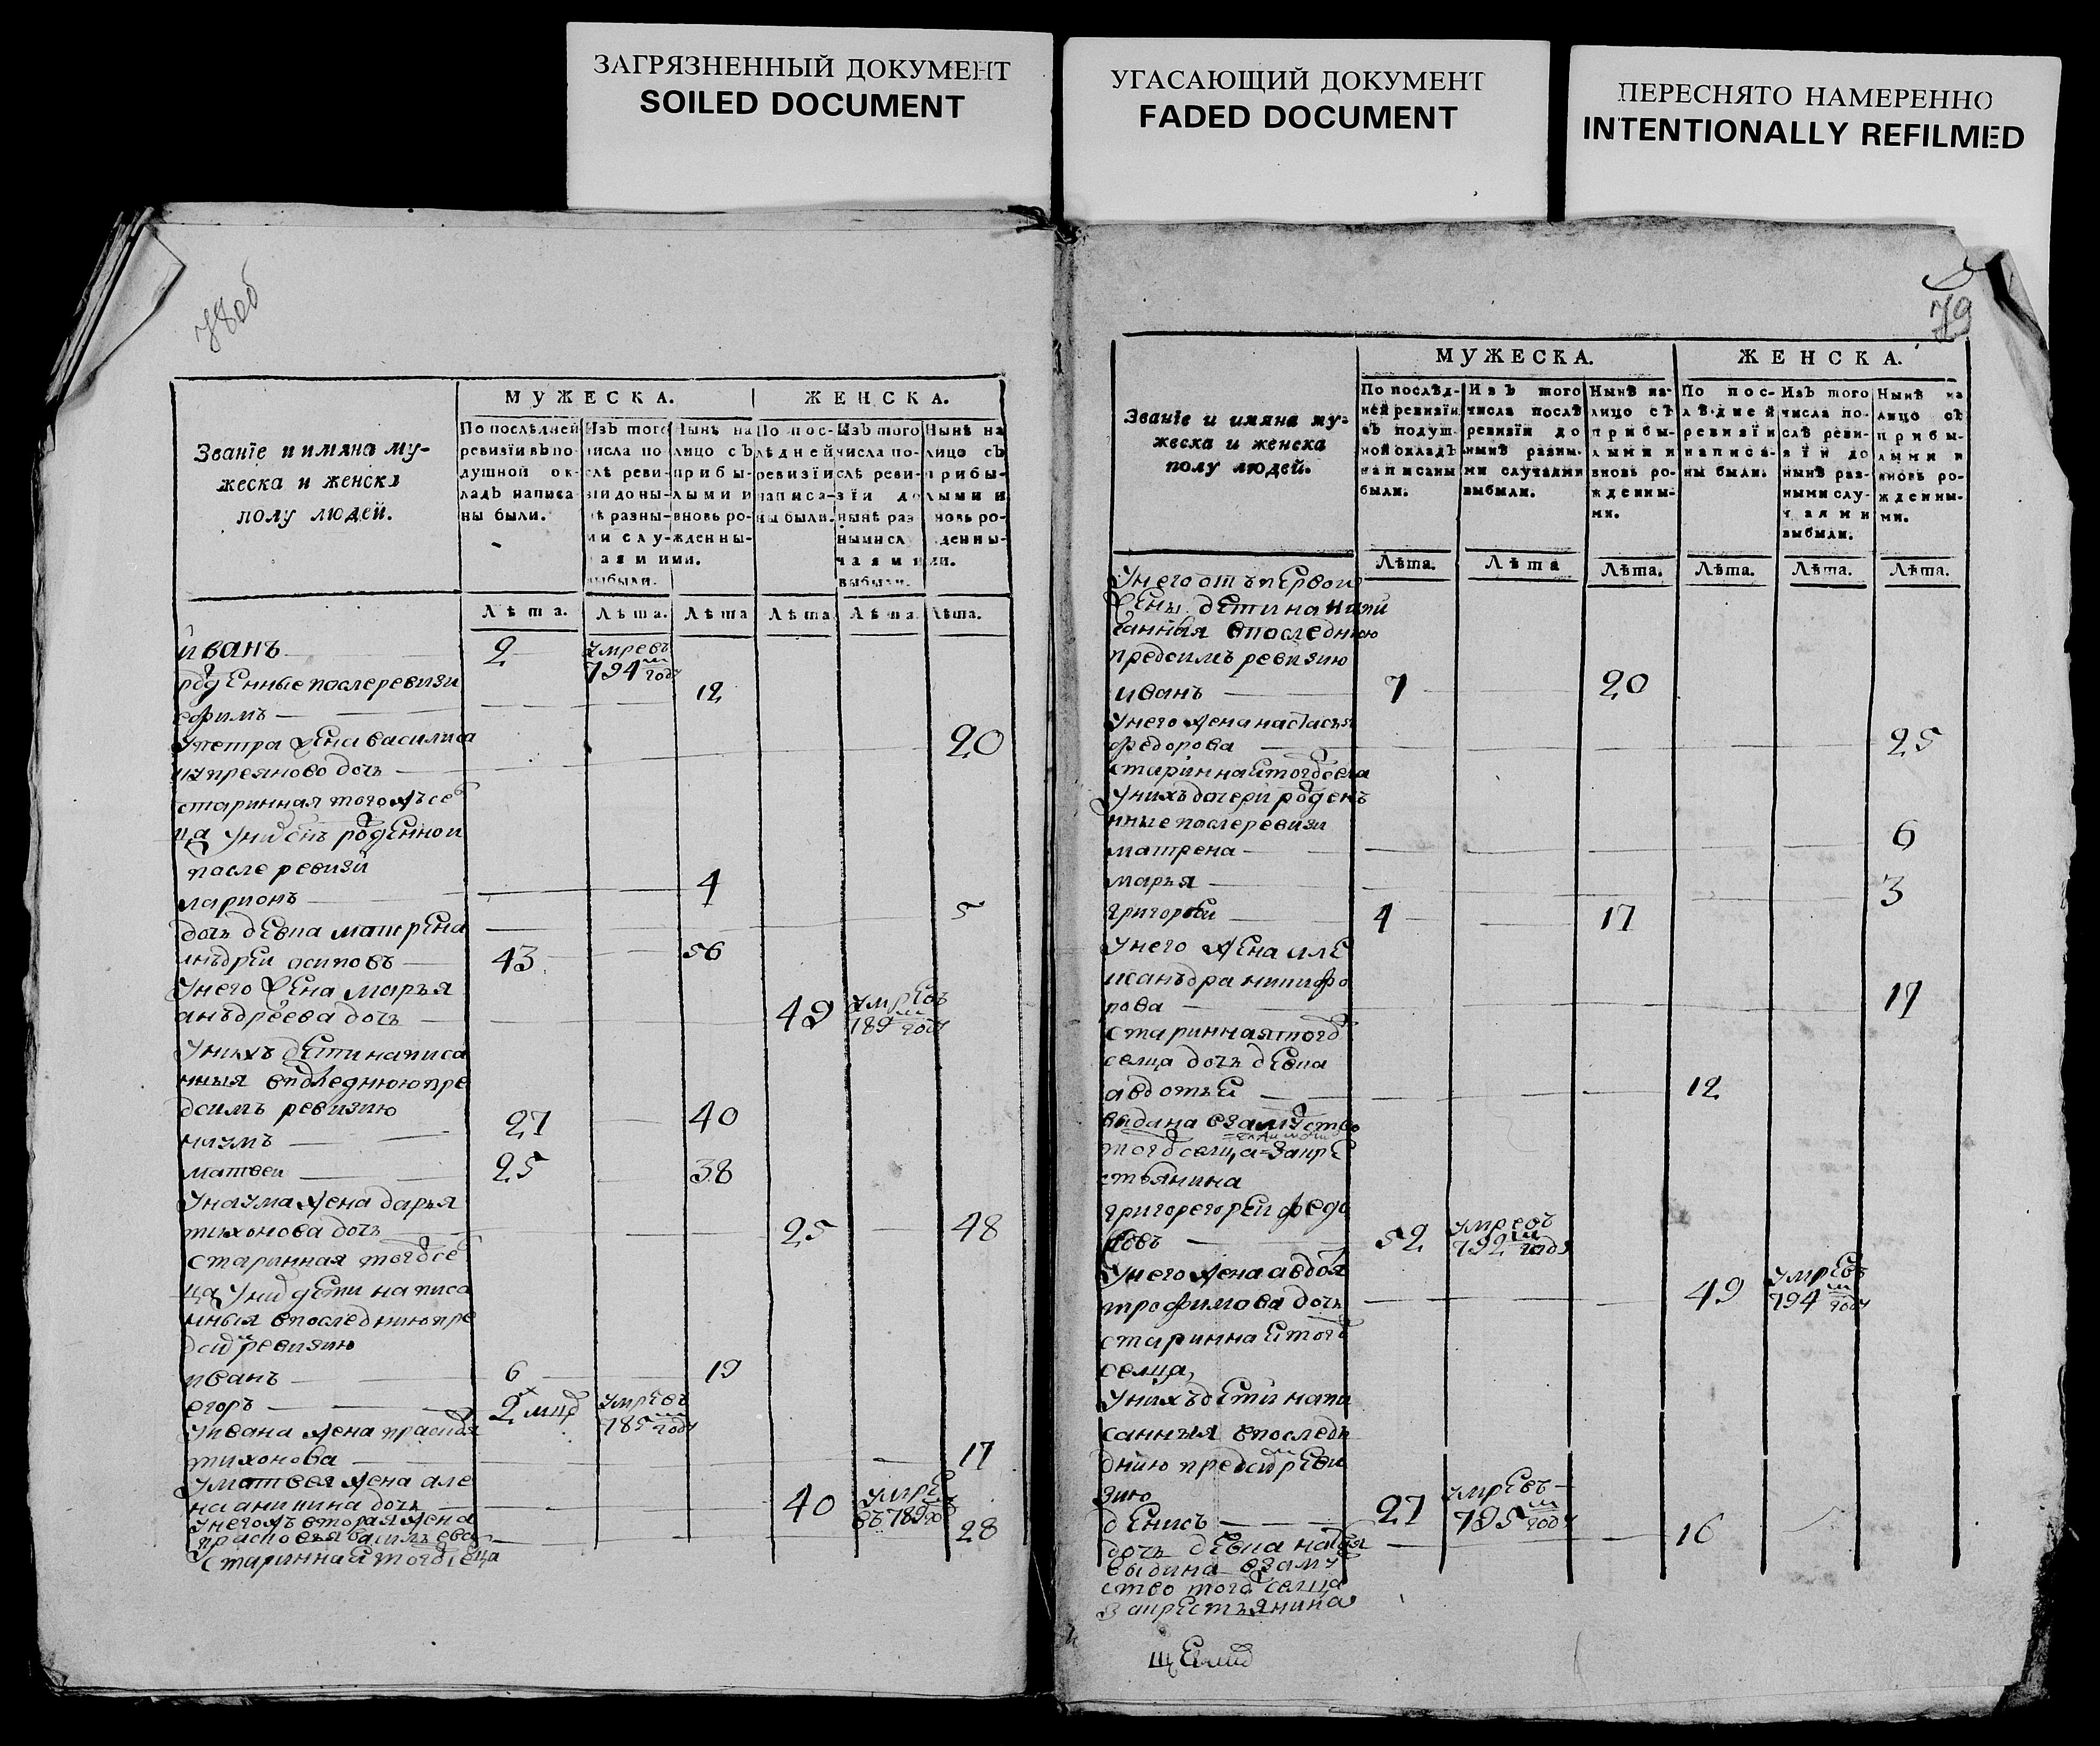 ЗАГРЯЗНЕННЫЙ ДОКУМЕНТ
SOILED DOCUMENT
УГАСАЮЩИЙ ДОКУМЕНТ
FADED DOCUMENT
ПЕРЕСНЯТО НАМЕРЕННО
INTENTIONALLY REFILMED
78об
Званїе и имяна му-
жеска и женска
полу людей.
МУЖЕСКА.
ЖЕНСКА.
По послѣдней
ревизїи въ по-
душной ок-
ладъ написа-
ны были.
Изъ того
числа по-
слѣ реви-
зїи до ны-
нѣ разны-
ми слу-
чаями
выбыли.
Нынѣ на
лицо съ
прибы-
лыми и
вновь ро-
жденны-
ми.
По пос-
лѣдней
ревизїи
написа-
ны были.
Изъ того
числа по-
слѣ реви-
зїи до
нынѣ раз
ными слу
чаями
выбыли.
Нынѣ на
лицо съ
прибы-
лыми и
вновь ро-
жденны-
ми.
Лѣта. Лѣта. Лѣта Лѣта Лѣта Лѣта.
иванъ 2 умре въ 794м году
рожденные после ревизи
ефимъ 12
упетра жена василиса
купреяново дочь 20
старинная того жъ се
ца у них сынъ рожденной
после ревизи
ларионъ 4
дочь девка матрена 5
анъдреи осиповъ 43 56
унего жена марья
анъдреева дочь 49 умре въ 789м году
унихъ дети написа
нныя впоследнюю пре
дсимъ ревизию
наумъ 27 40
матвеи 25 38
унаума жена дарья
тихонова дочь 25 48
старинная тогож се
ца уних дети написа
нныя впоследнюю пре
дсим ревизию
иванъ 6 19
егоръ 2 умре въ 785м году
уивана жена прасковья
тихонова 17
уматвея жена але
на аникина дочь 40 умре въ 789м го
унегожъ вторая жена
прасковья васильева 28
стариннаи тогож сеца
79
Званїе и имяна му-
жеска и женска
полу людей.
МУЖЕСКА.
ЖЕНСКА.
По послѣд-
ней ревизїи
въ подуш-
ной окладъ
написаны
были.
Изъ того
числа послѣ
ревизїи до
нынѣ разны-
ми случаями
выбыли.
Нынѣ на-
лицо съ
прибы-
лыми и
вновь ро-
жденны-
ми.
По пос-
лѣдней
ревизїи
написа-
ны были.
Изъ того
числа по-
слѣ реви-
зїи до
нынѣ раз-
ными слу-
чаями
выбыли.
Нынѣ на
лицо съ
прибы-
лыми и
вновь ро-
жденны-
ми.
Лѣта. Лѣта Лѣта. Лѣта. Лѣта. Лѣта.
унего отъ первои
жены дети напи
санныя впоследнюю
предсимъ ревизию
иванъ 7 20
унего жена настасья
федорова 25
стариннаи тогож села
унихъ дочери рожден
нные после ревизи
матрена 6
марья 3
григореи 4 17
унего жена але
ксанъдра никифо
рова 17
старинная тогож
селца дочь девка
авдотьи 12
выдана взамуство
тогож селца за кре
стьянина
григорегореи федо
ровъ 52 умре въ 792м году
унего жена авдотя
трофимова дочь 49 умре въ 794м году
стариннаи тогож
селца,
унихъ дети напи
санныя впоследн
днюю предсим реви
зию
денисъ 27 умре въ 795м году
дочь девка 16
выдана взаму
ство тогож селца
за крестьянина